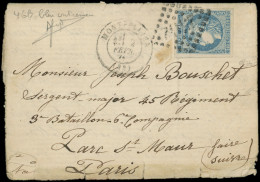 MONTPELLIER
Monsieur Joseph Bouschet
Sergent major 45 Régiment
3e Bataillon 6e Compagnie
Parc St Maur
faire
suivre
Paris